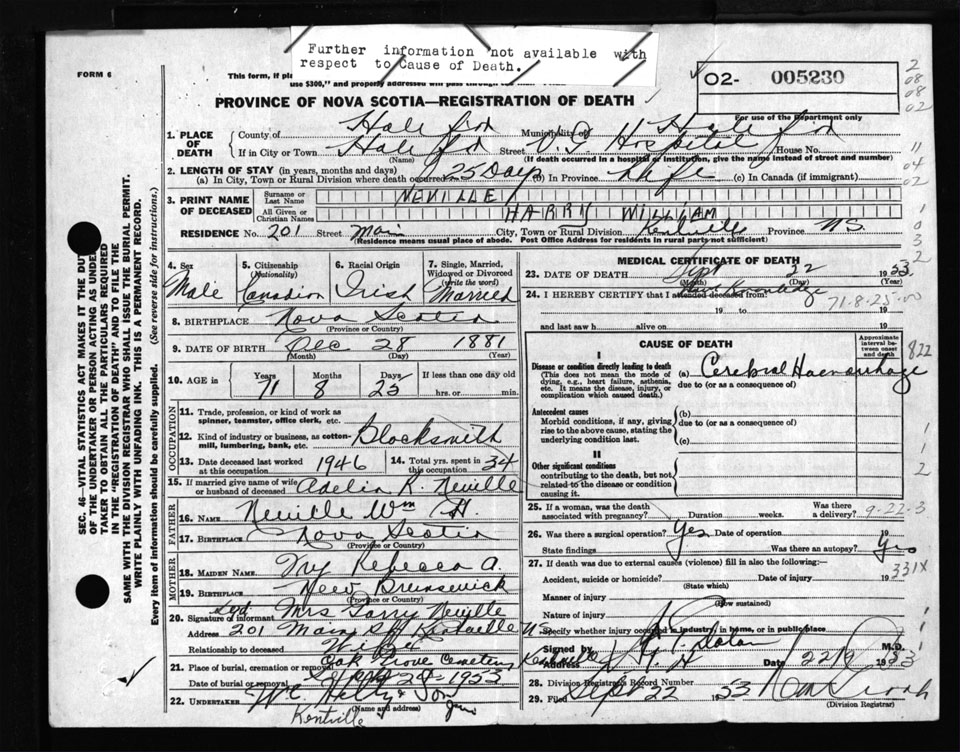 Further information not available with
respect to Cause of Death.
FORM 6
This form, if pl
use $300," and properly addressed will pass through
O2- 005230
PROVINCE OF NOVA SCOTIA—REGISTRATION OF DEATH
For use of the Department only
1. PLACE OF DEATH
County of Halifax Municipality of Halifax
If in City or Town Halifax Street V.G. Hospital House No.
(Name) (If death occurred in a hospital or institution, give the name instead of street and number)
2. LENGTH OF STAY (in years, months and days)
(a) In City, Town or Rural Division where death occurred 25 Days (b) In Province Life (c) In Canada (if immigrant)
3. PRINT NAME OF DECEASED
Surname or Last Name NEVILLE
All Given or Christian Names HARRY WILLIAM
RESIDENCE No. 201 Street Main City, Town or Rural Division Kentville Province N.S.
(Residence means usual place of abode. Post Office Address for residents in rural party not sufficient)
4. Sex Male
5. Citizenship (Nationality) Canadian
6. Racial Origin Irish
7. Single, Married, Widowed or Divorced (write the word) Married
8. BIRTHPLACE Nova Scotia
(Province or Country)
9. DATE OF BIRTH Dec 28 1881
(Month) (Day) (Year)
10. AGE in Years 71 Months 8 Days 25 If less than one day old
hrs. or min.
OCCUPATION
11. Trade, profession, or kind of work as
spinner, teamster, office clerk, etc.
12. Kind of industry or business, as cotton-
mill, lumbering, bank, etc. Blacksmith
13. Date deceased last worked at this occupation 1946
14. Total yrs. spent in this occupation 34
15. If married give name of wife
or husband of deceased Adelia R. Neville
FATHER
16. NAME Neville Wm H.
17. BIRTHPLACE Nova Scotia
(Province or Country)
MOTHER
18. MAIDEN NAME Rebecca A.
19. BIRTHPLACE New Brunswick
(Province or Country)
20. Signature of informant Sgd Mrs Harry Neville
Address 201 Main St Kentville N.S.
Relationship to deceased Wife
21. Place of burial, cremation or removal Oak Grove Cemetery
Date of burial or removal Sept 1953
22. UNDERTAKER W.C. & Son
(Name and address)
Kentville
MEDICAL CERTIFICATE OF DEATH
23. DATE OF DEATH Sept 22 1953
(Month) (Day) (Year)
24. I HEREBY CERTIFY that I attended deceased from:
19 to 19
71.8.25.00
and last saw h alive on 19
CAUSE OF DEATH
Approximate interval between onset and death
822
I
Disease or condition directly leading to death
(This does not mean the mode of
dying, e.g., heart failure, asthenia,
etc. It means the disease, injury, or
complication which caused death.)
(a) Cerebral Haemorrhage
due to (or as a consequence of)
Antecedent causes
Morbid conditions, if any, giving
rise to the above cause, stating the
underlying condition last.
(b)
due to (or as a consequence of)
(c)
II
Other significant conditions
contributing to the death, but not
related to the disease or condition
causing it.
25. If a woman, was the death
associated with pregnancy? Duration weeks. Was there a delivery?
9-22-3
26. Was there a surgical operation? Yes Date of operation
State findings Was there an autopsy? Yes
27. If death was due to external causes (violence) fill in also the following:—
331X
Accident, suicide or homicide? Date of injury 19
(State which)
Manner of injury
(How sustained)
Nature of injury
Specify whether injury occurred in industry, in home, or in public place
Signed by M.D.
Address V G H Date 22/9 1953
28. Division Registrars Record Number
29. Filed Sept 22 1953
(Division Registrar)
SEC. 46—VITAL STATISTICS ACT MAKES IT THE DUTY
OF THE UNDERTAKER OR PERSON ACTING AS UNDER-
TAKER TO OBTAIN ALL THE PARTICULARS REQUIRED
IN THE "REGISTRATION OF DEATH" AND TO FILE THE
SAME WITH THE DIVISION REGISTRAR WHO SHALL ISSUE THE BURIAL PERMIT.
WRITE PLAINLY WITH UNFADING INK. THIS IS A PERMANENT RECORD.
Every item of information should be carefully supplied. (See reverse side for instructions.)